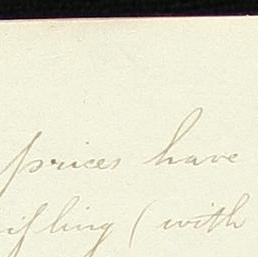 prices have
ifling ( with